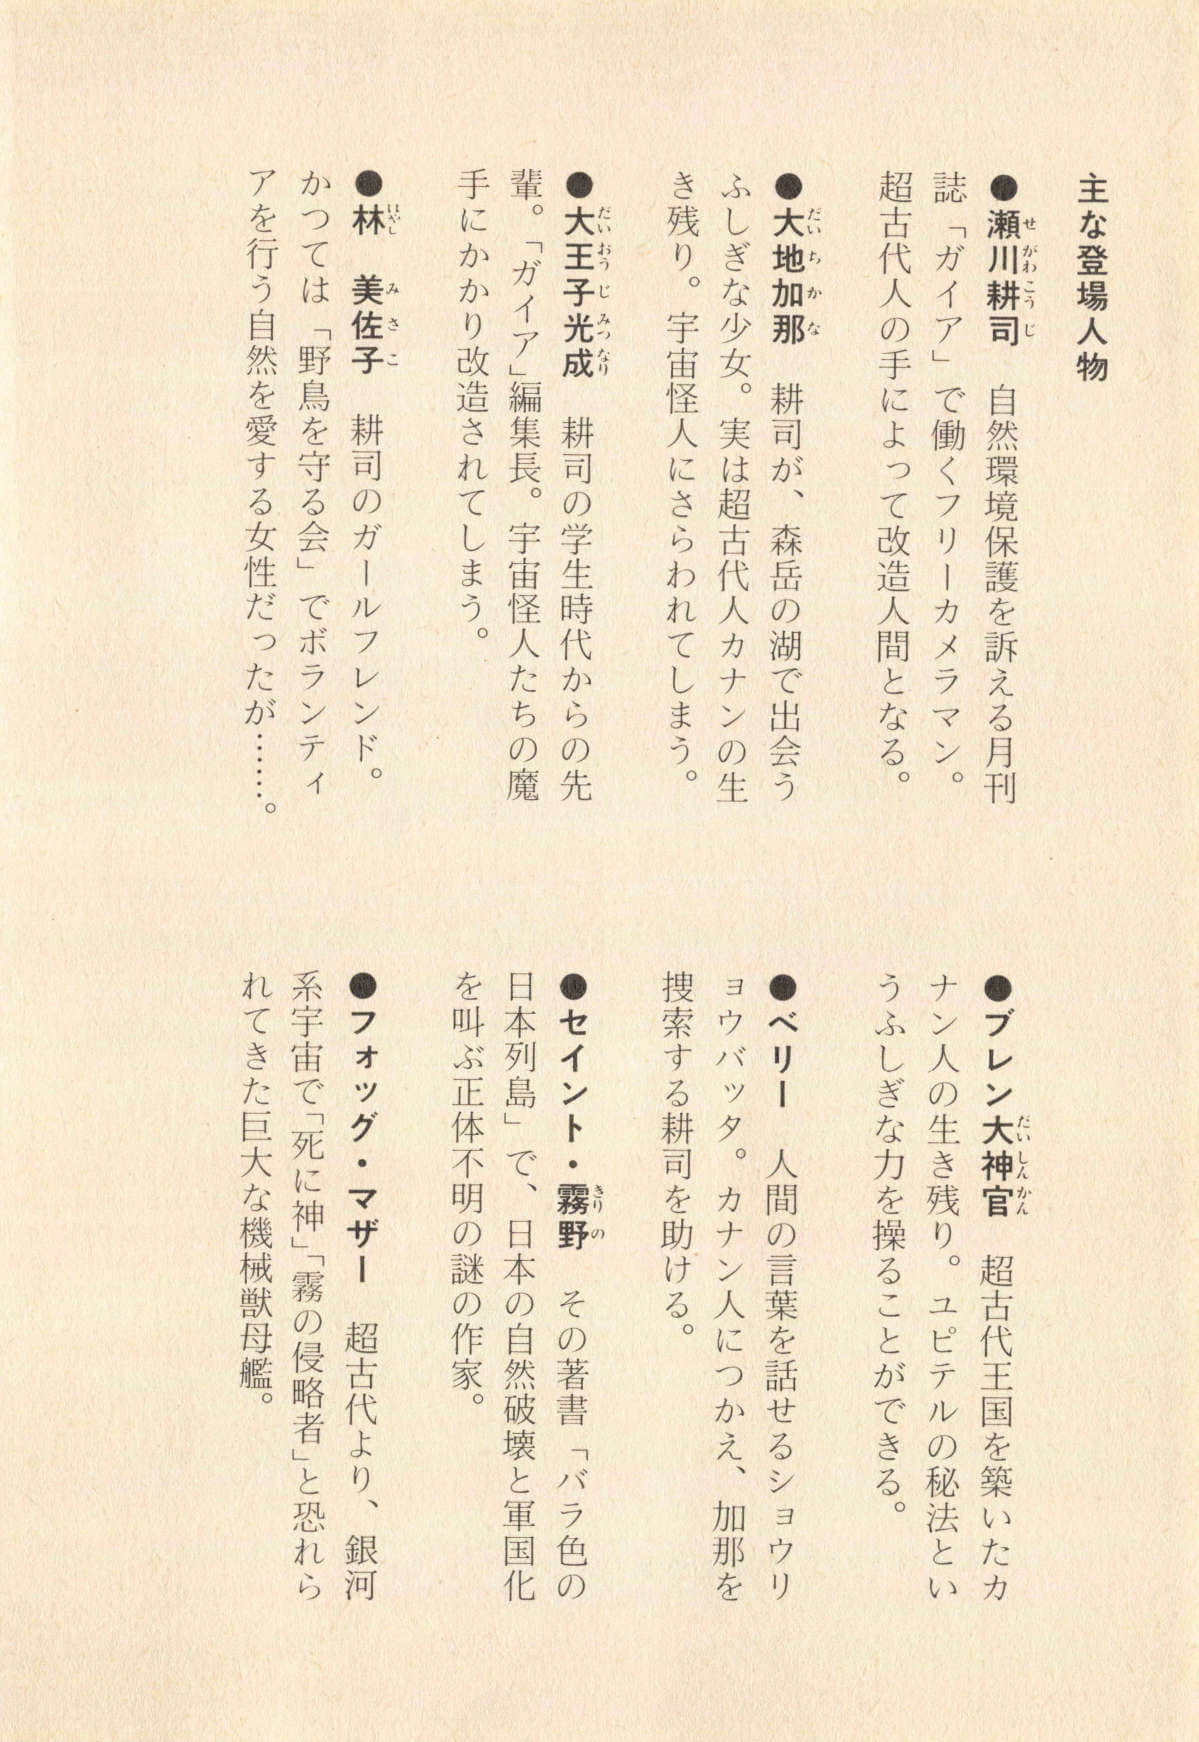 主な登場人物
●瀬川耕司　自然環境保護を訴える月刊
誌「ガイア」で働くフリーカメラマン。
超古代人の手によって改造人間となる。
●大地加那　耕司が、森岳の湖で出会う
ふしぎな少女。実は超古代人カナンの生
き残り。宇宙怪人にさらわれてしまう。
●大王子光成　耕司の学生時代からの先
輩。「ガイア」編集長。宇宙怪人たちの魔
手にかかり改造されてしまう。
●林　美佐子　耕司のガールフレンド。
かつては「野鳥を守る会」でボランティ
アを行う自然を愛する女性だったが……。
●ブレン大神官　超古代王国を築いたカ
ナン人の生き残り。ユピテルの秘法とい
うふしぎな力を操ることができる。
●ベリー　人間の言葉を話せるショウリ
ョウバッタ。カナン人につかえ、加那を
捜索する耕司を助ける。
●セイント・霧野　その著書「バラ色の
日本列島」で、日本の自然破壊と軍国化
を叫ぶ正体不明の謎の作家。
●フォッグ・マザー　超古代より、銀河
系宇宙で「死に神」「霧の侵略者」と恐れら
れてきた巨大な機械獣母艦。